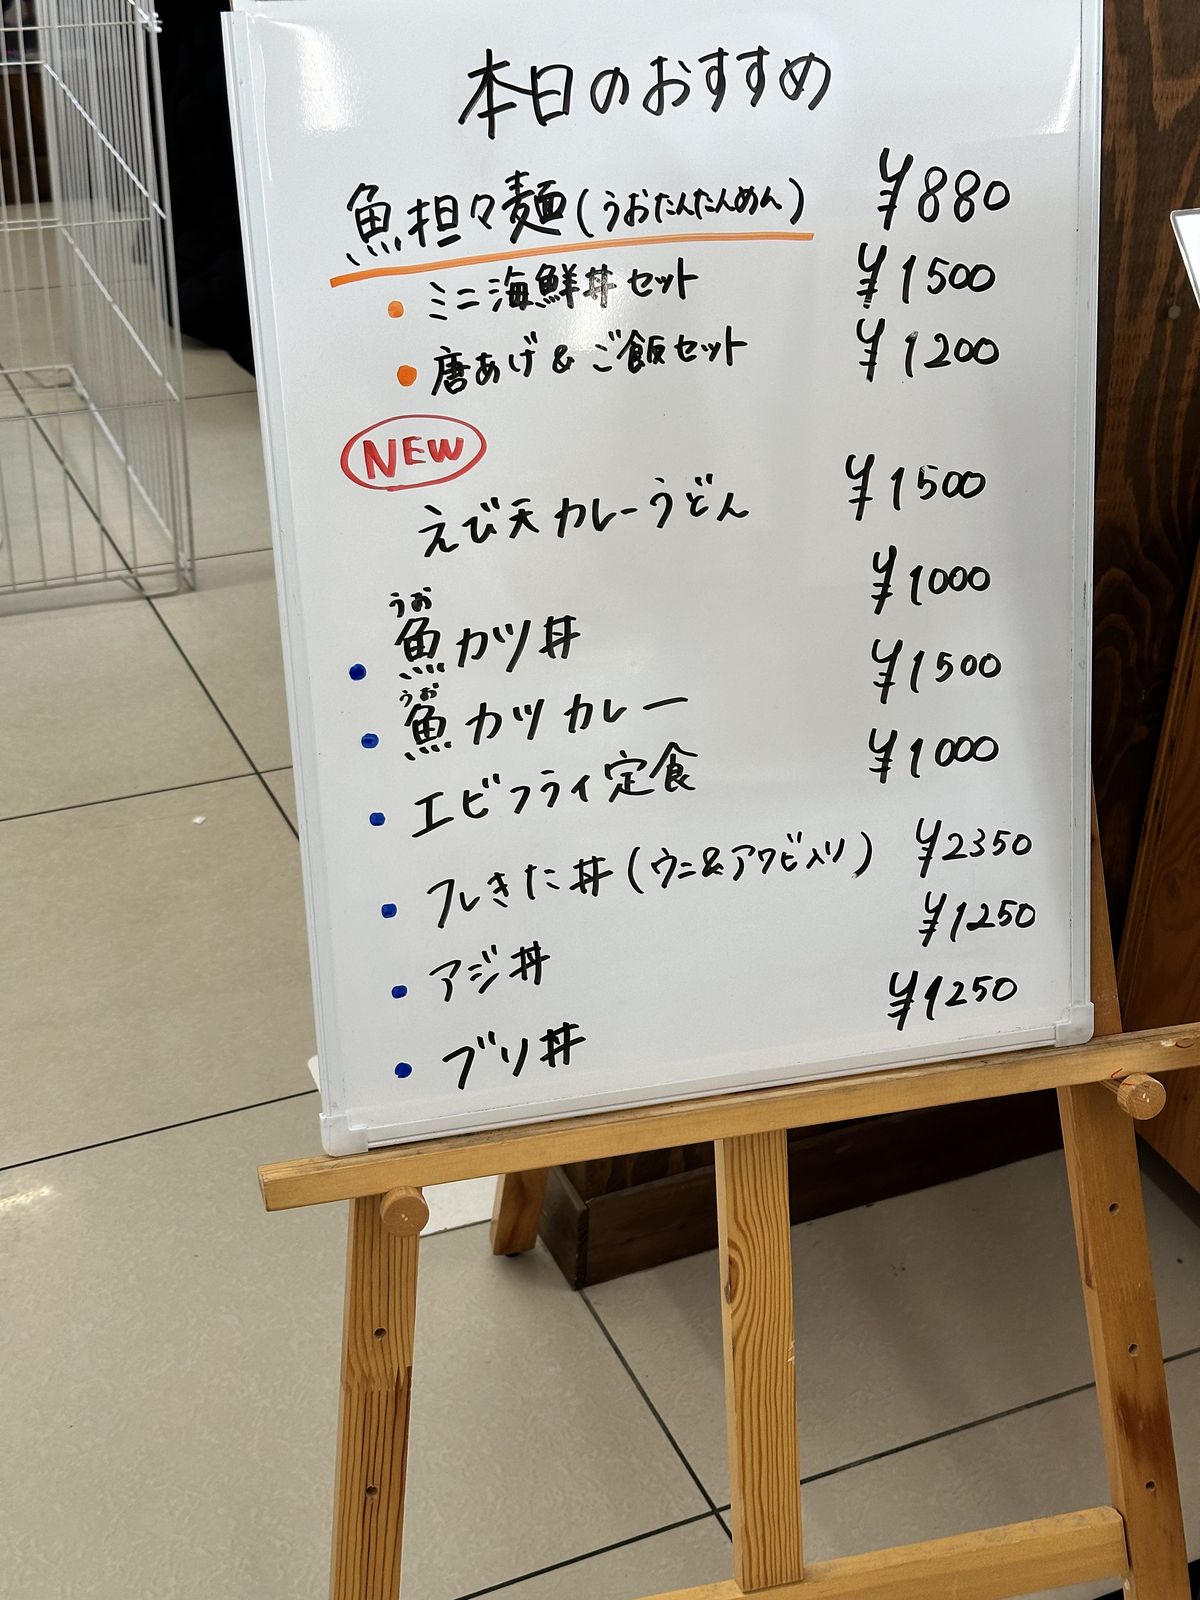 本日のおすすめ
魚担々麺(うおたんたんめん) ¥880
• ミニ海鮮丼セット ¥1500
• 唐あげ&ご飯セット ¥1200
NEW
えび天カレーうどん ¥1500
• 魚カツ丼 ¥1000
うお
• 魚カツカレー ¥1500
うお
• エビフライ定食 ¥1000
• フレきた丼(ウニ&アワビ入り) ¥2350
• アジ丼 ¥1250
• ブリ丼 ¥1250